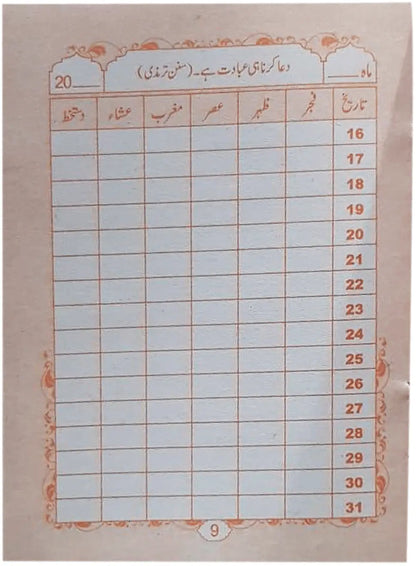 ماہ ____ دعا کرنا ہی عبادت ہے۔ (سنن ترمذی) 20____
تاریخ فجر ظہر عصر مغرب عشاء دستخط
16
17
18
19
20
21
22
23
24
25
26
27
28
29
30
31
9